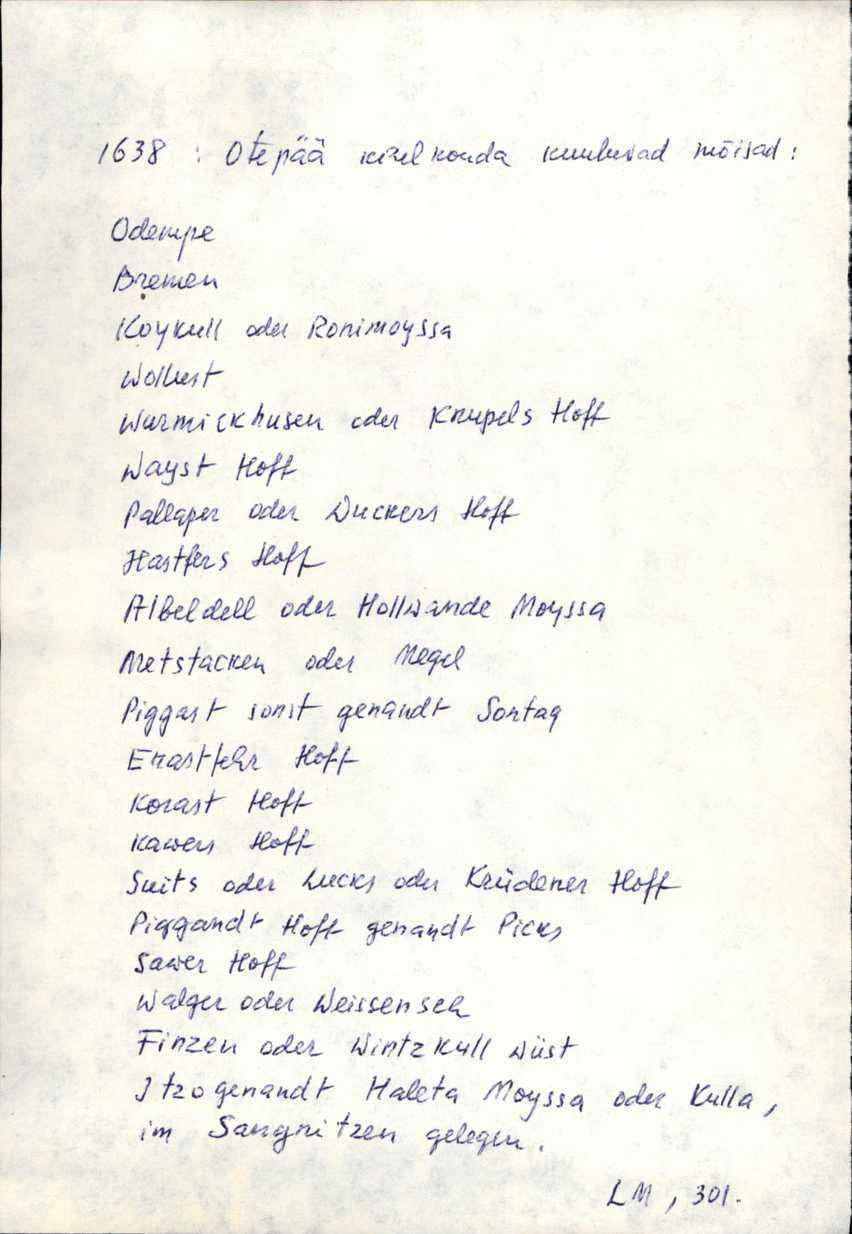 1638 : Otepää kihelkonda kuuluvad mõisad :
Odempe
Bremen
Koykull oder Ronimoyssa
Wollust
Wurmickhusen oder Krupels Hoff
Wayst Hoff
Pallaper oder Duckers Hoff
Hastfers Hoff
Albeldell oder Hollwande Moyssa
Metstacken oder Megel
Piggast sonst genandt Sontag
Erastfehr Hoff
Korast Hoff
Kawers Hoff
Suits oder Lucks oder Krüdener Hoff
Piggandt Hoff genandt Picks
Sawer Hoff
Walger oder Weissenseh
Finzen oder Wintzkull wüst
Itzo genandt Haleta Moyssa oder Kulla,
im Sangnitzen gelegen.
LM, 301.